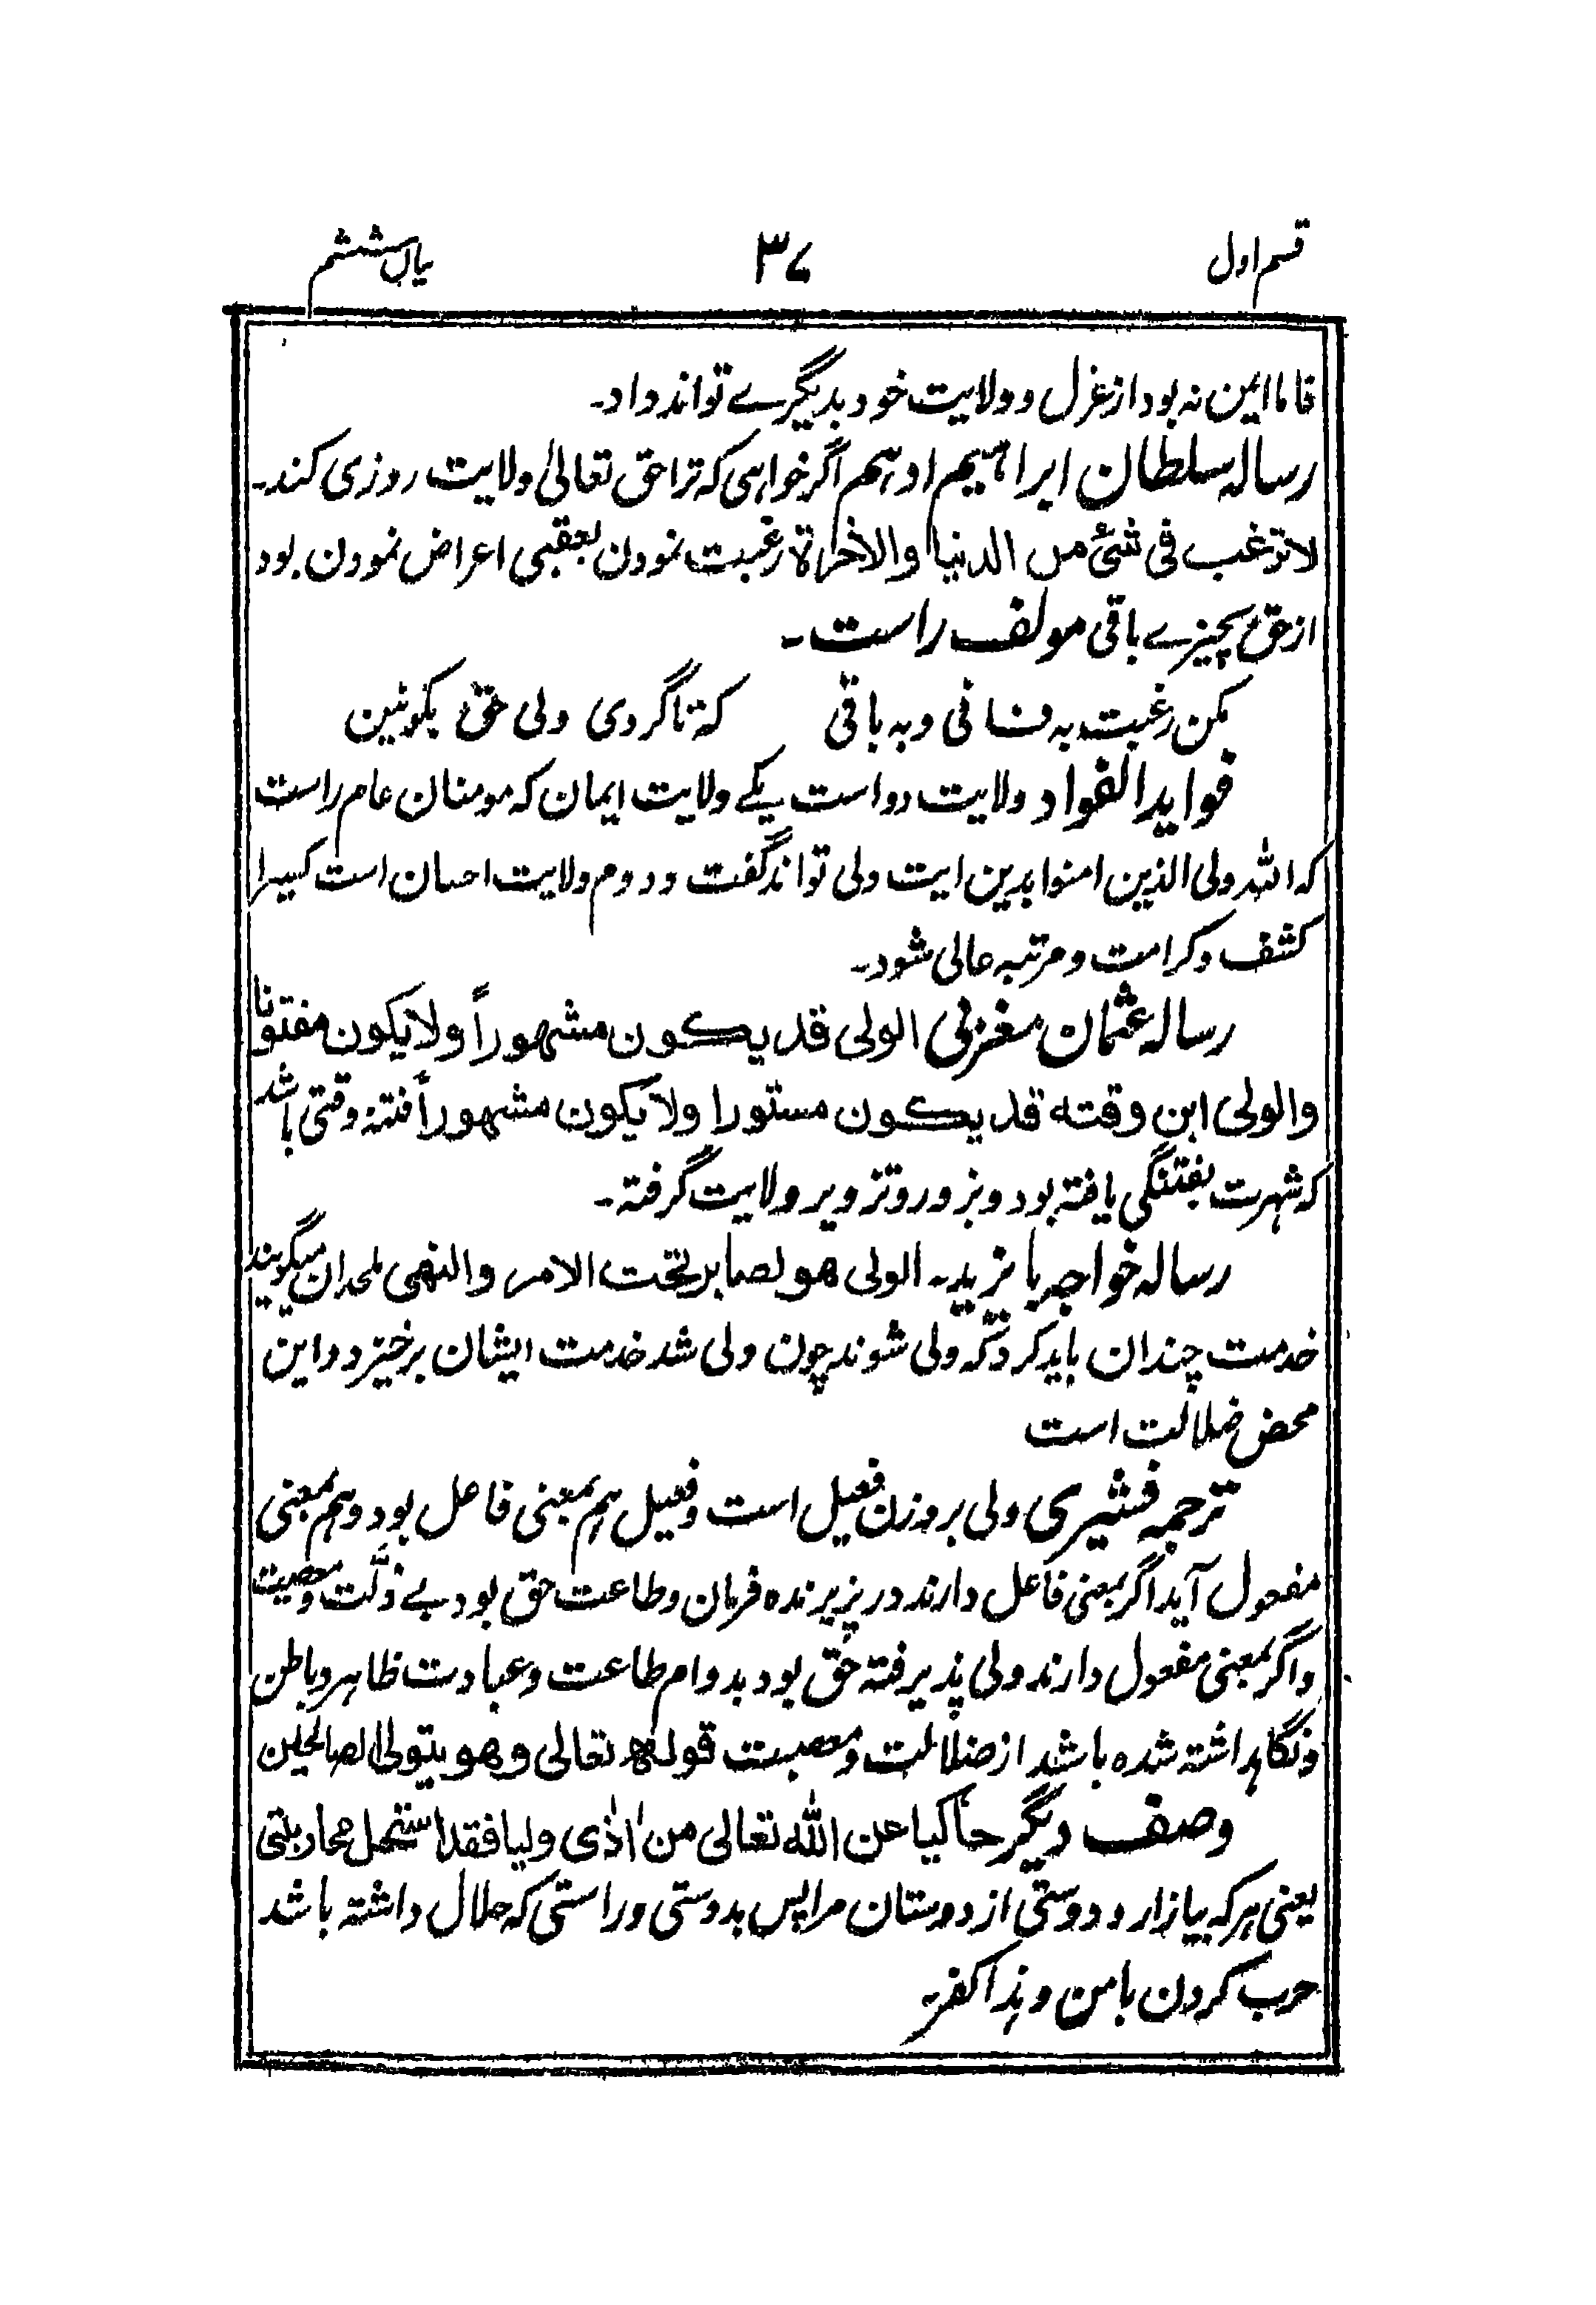 قسم اول ۳۷ بیان ششم
فاما ایمن نہ بود از عزل و ولایت خود بدیگرے تواند داد۔
رسالہ سلطان ابراہیم ادہم اگر خواہی کہ ترا حق تعالیٰ ولایت روزی کند۔
لا ترغب فی شئ من الدنیا والاخراة رغبت نمودن بعقبی اعراض نمودن بود
از حق بچیزے باقی مولف راست۔
مکن رغبت بہ فانی و بہ باقی کہ تا گردی ولی حق بکونین
فواید الفواد ولایت دو است یکے ولایت ایمان کہ مومنان عام راست
کہ اللہ ولی الذین امنوا بدین ایت ولی تواند گفت و دوم ولایت احسان است کسیرا
کشف و کرامت و مرتبہ عالی شود۔
رسالہ عثمان مغربی الولی قد یکون مشهوراً ولا یکون مفتونا
والولی ابن وقته قد یکون مستورا ولا یکون مشهوراً فتنہ وقتی باشد
کہ شہرت بفتنگی یافتہ بود و بزور و تزویر ولایت گرفتہ۔
رسالہ خواجہ بایزید۔ الولی هو لصابر تحت الامر والنهی ملحدان میگویند
خدمت چندان باید کرد کہ ولی شوند چون ولی شد خدمت ایشان برخیزد و این
محض ضلالت است
ترجمہ قشیری ولی بروزن فعیل است و فعیل ہم بمعنی فاعل بود و ہم بمعنی
مفعول آید اگر بمعنی فاعل دارند در پزیرندہ فرمان و طاعت حق بود بے زلّت و معصیت
و اگر بمعنی مفعول دارند ولی پذیرفتہ حق بود بدوام طاعت و عبادت ظاہر و باطن
و نگاہداشتہ شدہ باشد از ضلالت و معصیت قوله تعالی وهو یتولی الصالحین
وصف دیگر حاکیا عن الله تعالی من اذی ولیا فقد استحل محاربتی
یعنی ہر کہ بیازارد دوستی از دوستان مرا پس بدوستی و راستی کہ حلال داشتہ باشد
حرب کردن با من و ہذا کفر۔